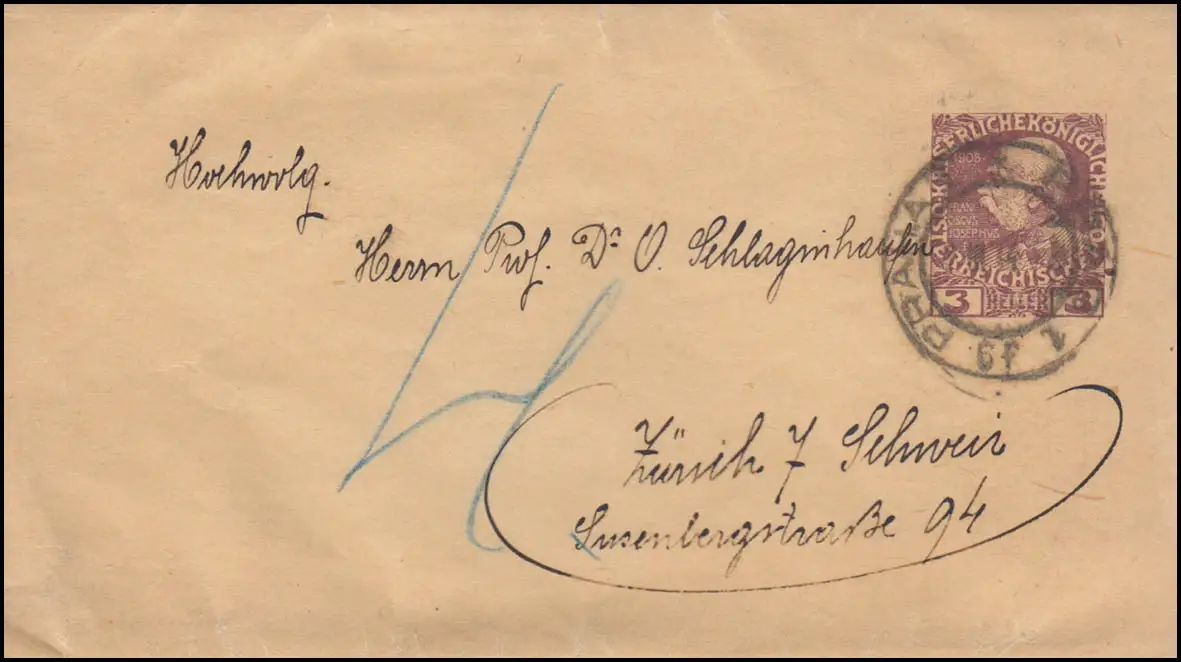 Hochwolg.
Herrn Prof. Dr. O. Schlaginhaufen
Zürich 7 Schweiz
Susenbergstraße 94
KAISERLICHEKÖNIGLICHE
ÖSTERREICHISCHE
1908
JOSEPHUS
3 HELLER 3
PRAHA 1